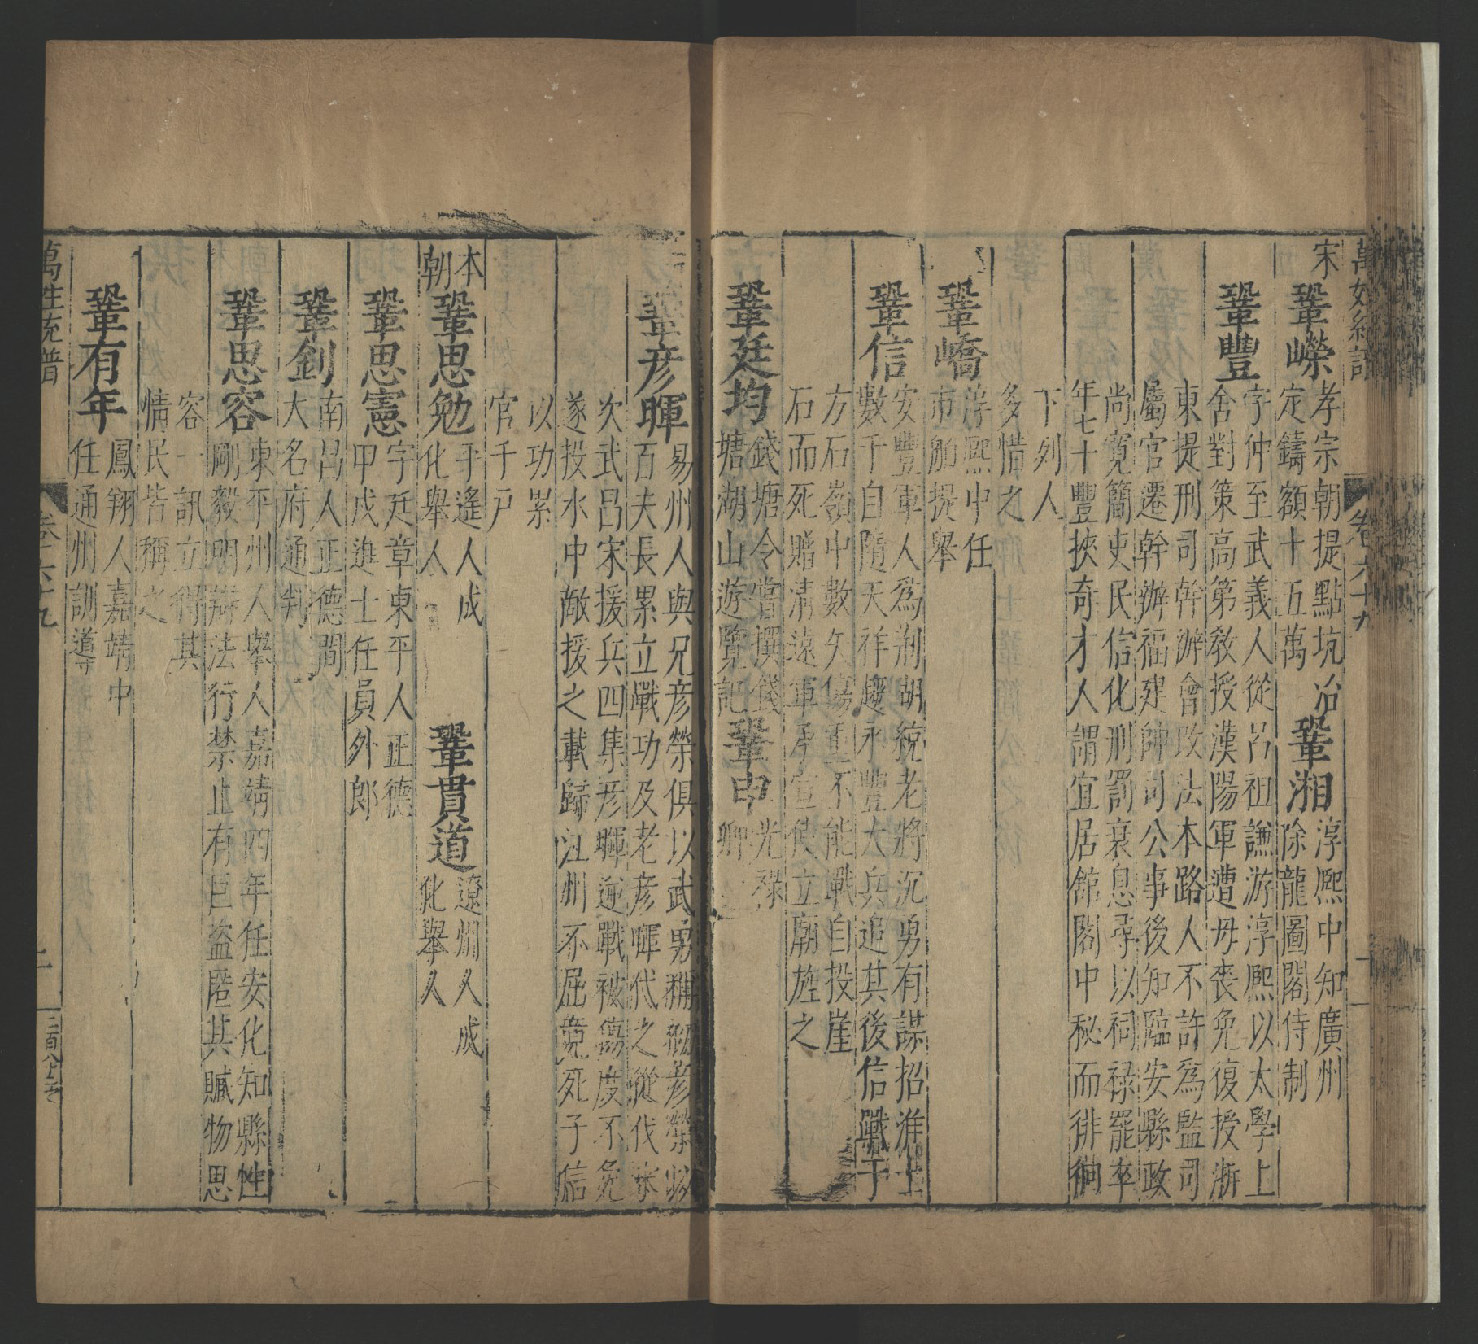 萬姓統譜 卷六十九
宋 鞏嶸 孝宗朝提點坑冶
定鑄額十五萬
鞏湘 淳熙中知廣州
除龍圖閣侍制
鞏豐 字仲至武義人從呂祖謙游淳熙以太學上
舍對策高第教授漢陽軍遭毋喪免復授浙
東提刑司幹辦會攺法本路人不許為監司
屬官遷幹辦福建帥司公事後知臨安縣政
尚寬簡吏民信化刑罰衰息尋以祠祿罷卒
年七十豐挾奇才人謂宜居舘閣中秘而徘徊
下列人
多惜之
鞏嶠 淳熙中任
市舶提舉
鞏信 安豐軍人為荆湖統老將沉勇有謀招淮士
數千自隨天祥趨永豐大兵追其後信戰于
方石嶺中數矢傷重不能戰自投崖
石而死贈清遠軍承宣使立廟旌之
鞏廷均 錢塘令嘗撰錢
塘湖山遊覽記
鞏申 光祿
卿
鞏彦暉 易州人與兄彦榮俱以武勇稱初彦榮為
百夫長累立戰功及老彦暉代之從伐宋
次武呂宋援兵四集彦暉逆戰被傷度不免
遂投水中敵援之載歸江州不屈竟死子信
以功累
官千戶
本朝 鞏思勉 平遙人成
化舉人
鞏貫道 遼州人成
化舉人
鞏思憲 字廷章東平人正德
甲戌進士任員外郎
鞏釗 南呂人正德間
大名府通判
鞏思容 東平州人舉人嘉靖四年任安化知縣性
剛毅明辦法行禁止有巨盜匿其贓物思
容一訊立得其
情民皆稱之
鞏有年 鳳翔人嘉靖中
任通州訓導
萬姓統譜 卷六十九 二